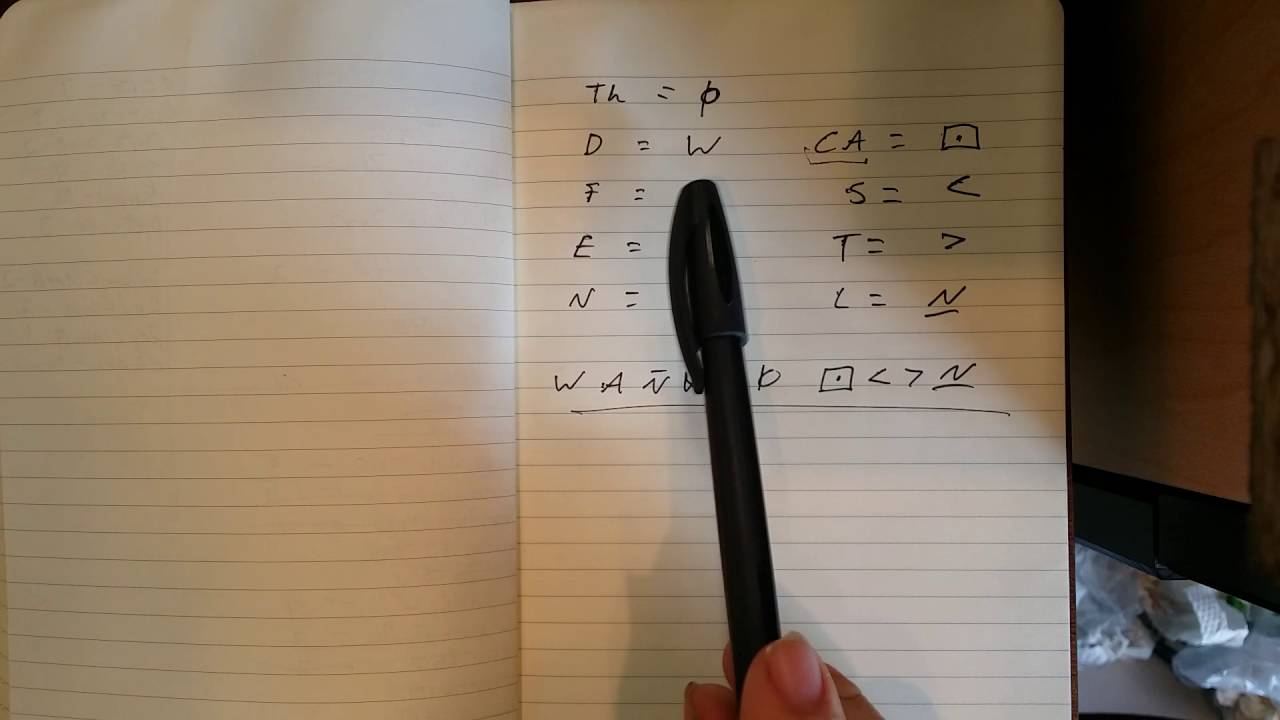 Th = ϕ
D = W .CA = ⊡
F = S = <
E = T = >
N = L = N
W .A N̄ ⊡ < > N